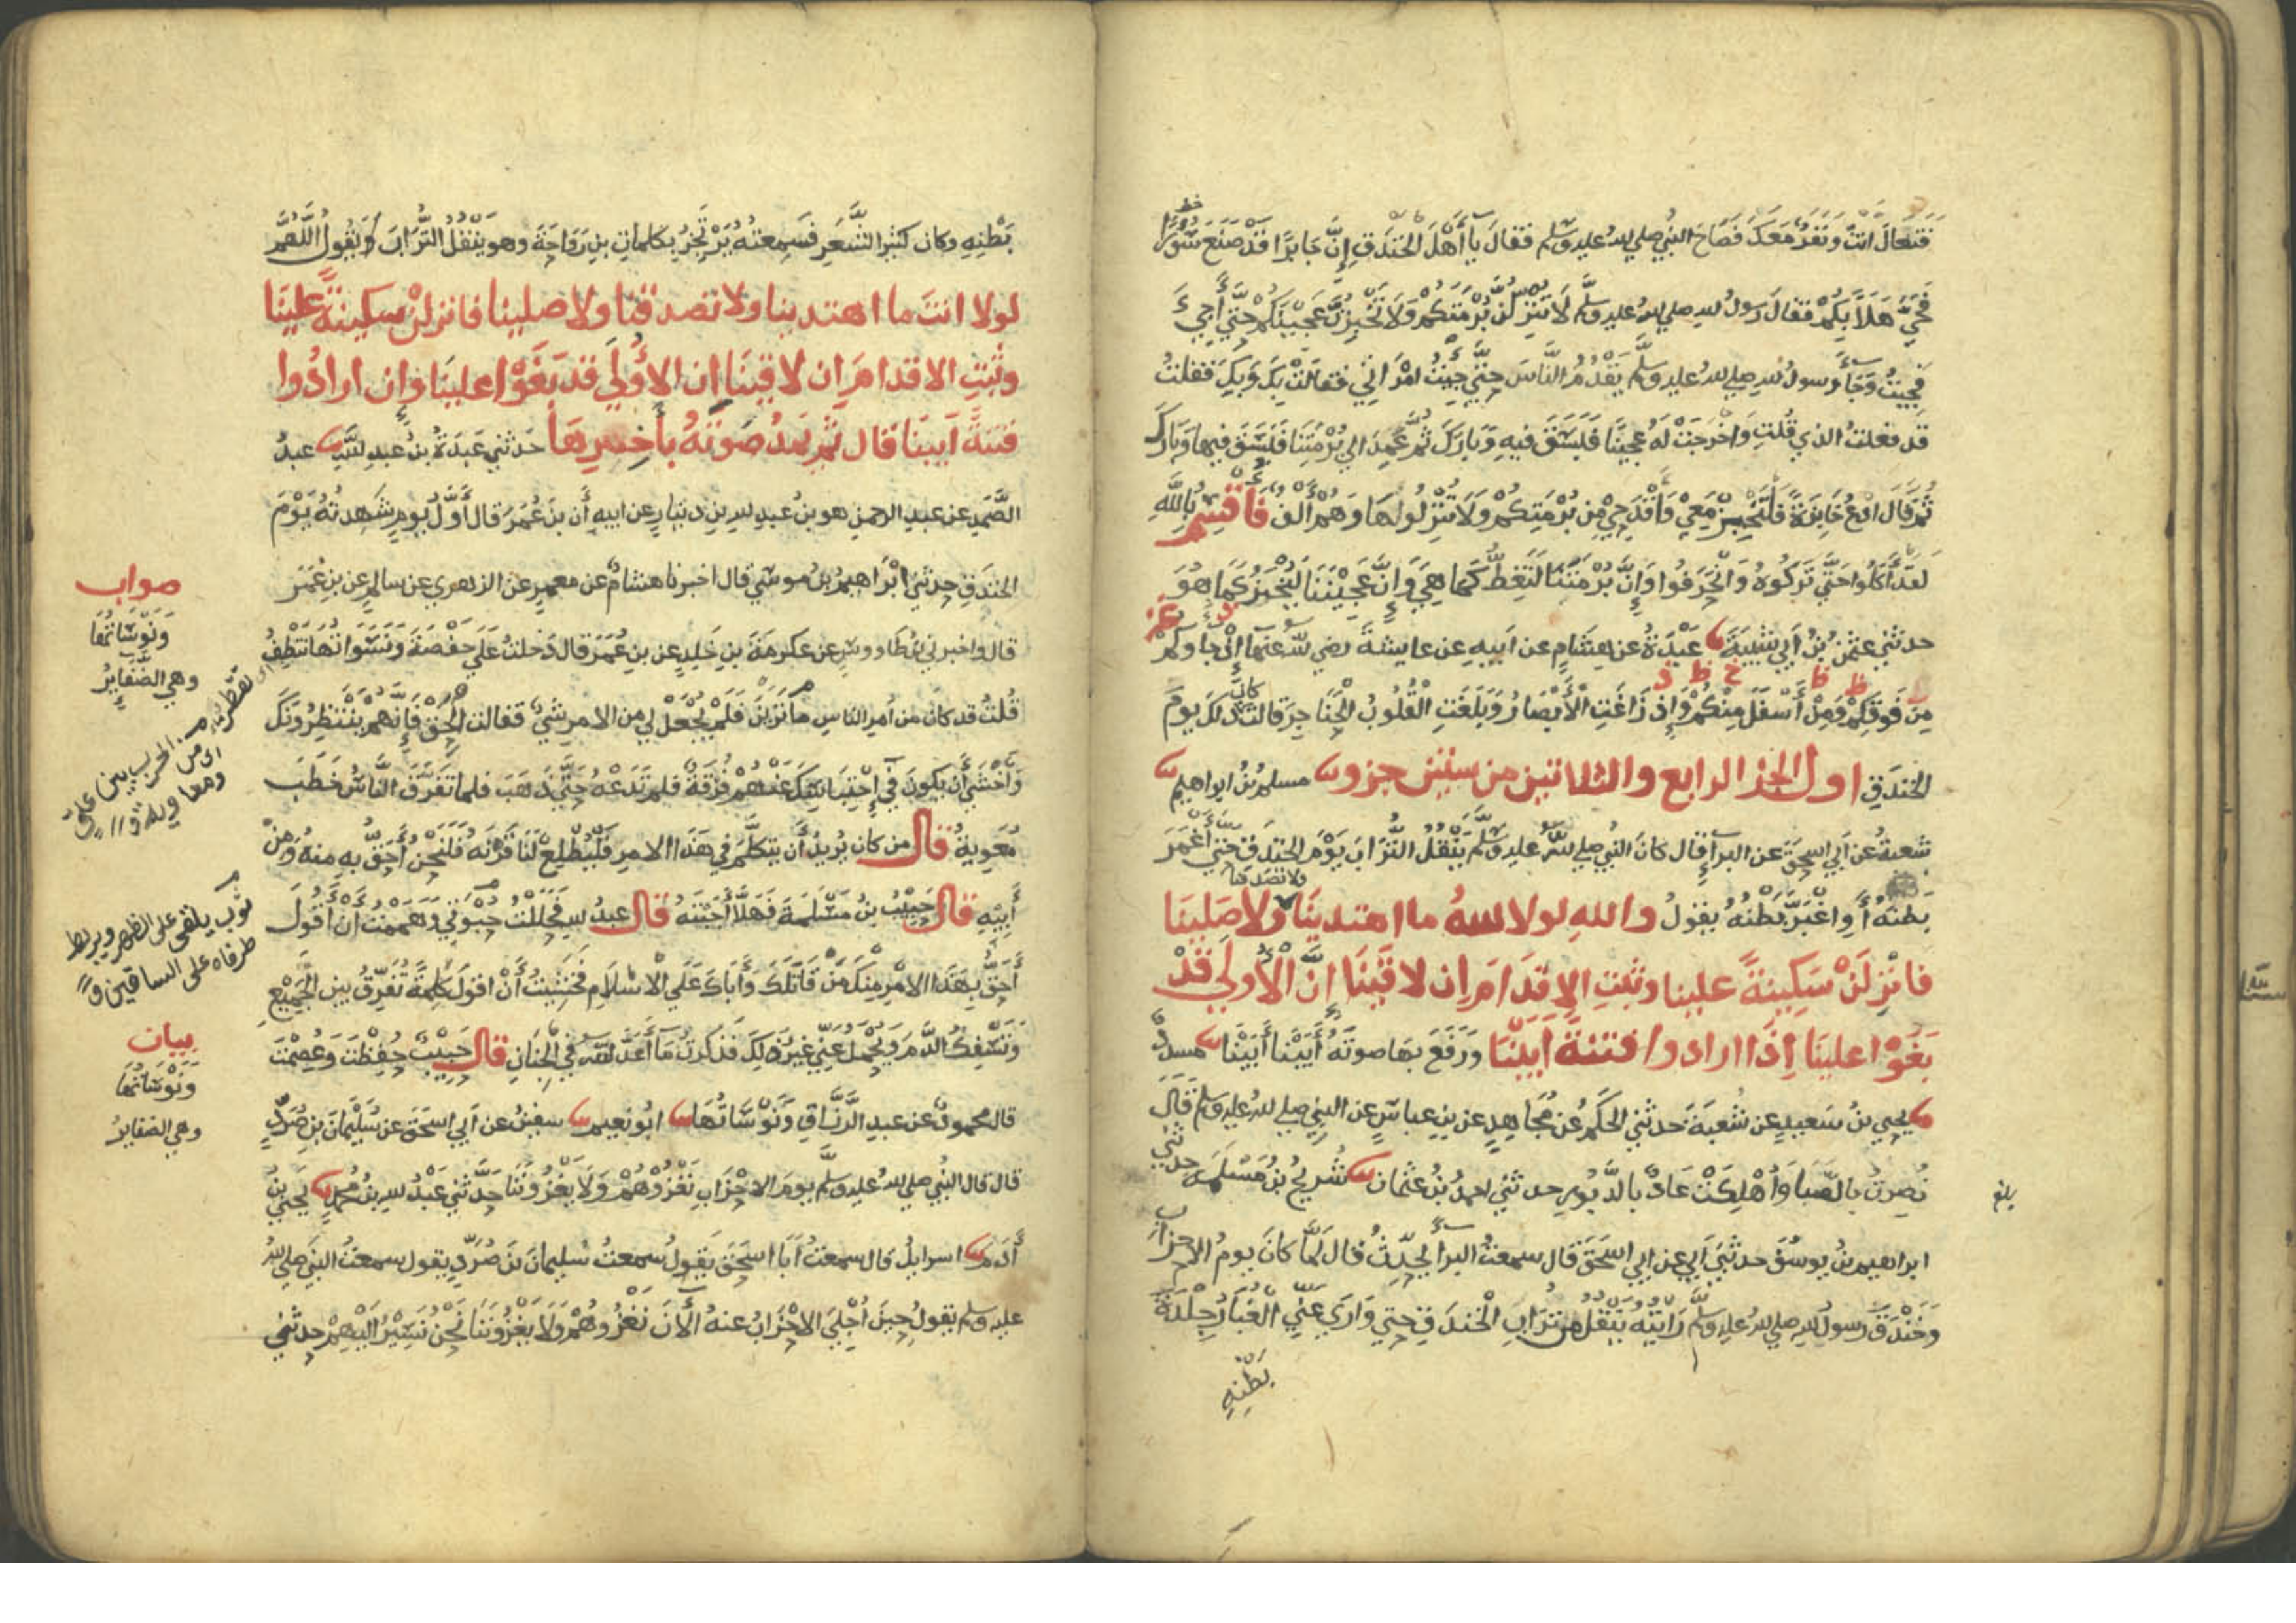 فتعال انت ونفر معك فصاح النبي صلى الله عليه وسلم فقال يا أهل الخندق إن جابرا قد صنع سورا
فحي هلا بكم فقال رسول الله صلى الله عليه وسلم لا تنزلن برمتكم ولا تخبزن عجينكم حتى أجيء
فجيت وجاء رسول الله صلى الله عليه وسلم يقدم الناس حتى جيت امراتي فقالت بك وبك فقلت
قد فعلت الذي قلت واخرجت له عجينا فبسق فيه وبارك ثم عمد الى برمتنا فبسق فيها وبارك
ثم قال ادع خابزة فلتخبز معي واقدحي من برمتكم ولا تنزلوها وهم ألف فاقسم بالله
لقد أكلوا حتى تركوه وانحرفوا وإن برمتنا لتغط كما هي وإن عجيننا ليخبز كما هو
حدثني عثمن بن أبي شيبة عبدة عن هشام عن ابيه عن عايشة رضي الله عنها إذ جاوكم
من فوقكم ومن أسفل منكم وإذ زاغت الأبصار وبلغت القلوب الحناجر قالت كان ذلك يوم
الخندق اول الجز الرابع والثلاثين من ستين جزو مسلم بن ابراهيم
شعبة عن أبي اسحق عن البراء قال كان النبي صلى الله عليه وسلم ينقل التراب يوم الخندق حتى أغمر
بطنه أو اغبر بطنه يقول والله لولا الله ما اهتدينا ولا تصدقنا ولا صلينا
فانزلن سكينة علينا وثبت الاقدام ان لاقينا ان الأولى قد
بغوا علينا إذا ارادوا فتنة أبينا ورفع بها صوته أبينا أبينا مسدد
يحيى بن سعيد عن شعبة حدثني الحكم عن مجاهد عن بن عباس عن النبي صلى الله عليه وسلم قال
نصرت بالصبا وأهلكت عاد بالدبور حدثني احمد بن عثمان شريح بن مسلمة حدثني
بلغ
ابراهيم بن يوسف حدثني أبي عن ابي اسحق قال سمعت البراء يحدث قال لما كان يوم الاحزاب
وخندق رسول الله صلى الله عليه وسلم رايته ينقل من تراب الخندق حتى وارى عني الغبار جلدة
بطنه
بطنه وكان كثير الشعر فسمعته يرتجز بكلمات بن رواحة وهو ينقل التراب ويقول اللهم
لولا انت ما اهتدينا ولا تصدقنا ولا صلينا فانزلن سكينة علينا
وثبت الاقدام ان لاقينا ان الأولى قد بغوا علينا وإن ارادوا
فتنة أبينا قال ثم يمد صوته بأخرها حدثني عبدة بن عبد الله عبد
الصمد عن عبد الرحمن هو بن عبد الله بن دينار عن ابيه أن بن عمر قال أول يوم شهدته يوم
الخندق حدثني ابراهيم بن موسى قال اخبرنا هشام عن معمر عن الزهري عن سالم عن بن عمر
قال واخبرني بن طاووس عن عكرمة بن خالد عن بن عمر قال دخلت على حفصة ونسواتها تنطف
قلت قد كان من أمر الناس ما ترين فلم يجعل لي من الامر شي فقالت الحق فإنهم ينتظرونك
وأخشى أن يكون في احتباسك عنهم فرقة فلم تدعه حتى ذهب فلما تفرق الناس خطب
معوية قال من كان يريد أن يتكلم في هذا الامر فليطلع لنا قرنه فلنحن أحق به منه ومن
أبيه قال حبيب بن مسلمة فهلا أجبته قال عبد الله فحللت حبوتي وهممت أن أقول
أحق بهذا الامر منك من قاتلك وأباك على الاسلام فخشيت أن اقول كلمة تفرق بين الجميع
وتسفك الدم ويحمل عني غير ذلك فذكرت ما أعد الله في الجنان قال حبيب حفظت وعصمت
قال محمود عن عبد الرزاق ونوساتها ابو نعيم سفين عن أبي اسحق عن سليمان بن صرد
قال قال النبي صلى الله عليه وسلم يوم الاحزاب نغزوهم ولا يغزوننا حدثني عبد الله بن محمد يحيى بن
أدم اسرايل قال سمعت أبا اسحق يقول سمعت سليمان بن صرد يقول سمعت النبي صلى الله
عليه وسلم يقول حين أجلى الاحزاب عنه ألآن نغزوهم ولا يغزوننا نحن نسير اليهم حدثني
صواب
ونوساتها
وهي الضفاير
اي تقطر
ثوب يلقى على الظهر ويربط
طرفاه على الساقين
بيان
ونوساتها
وهي الضفاير